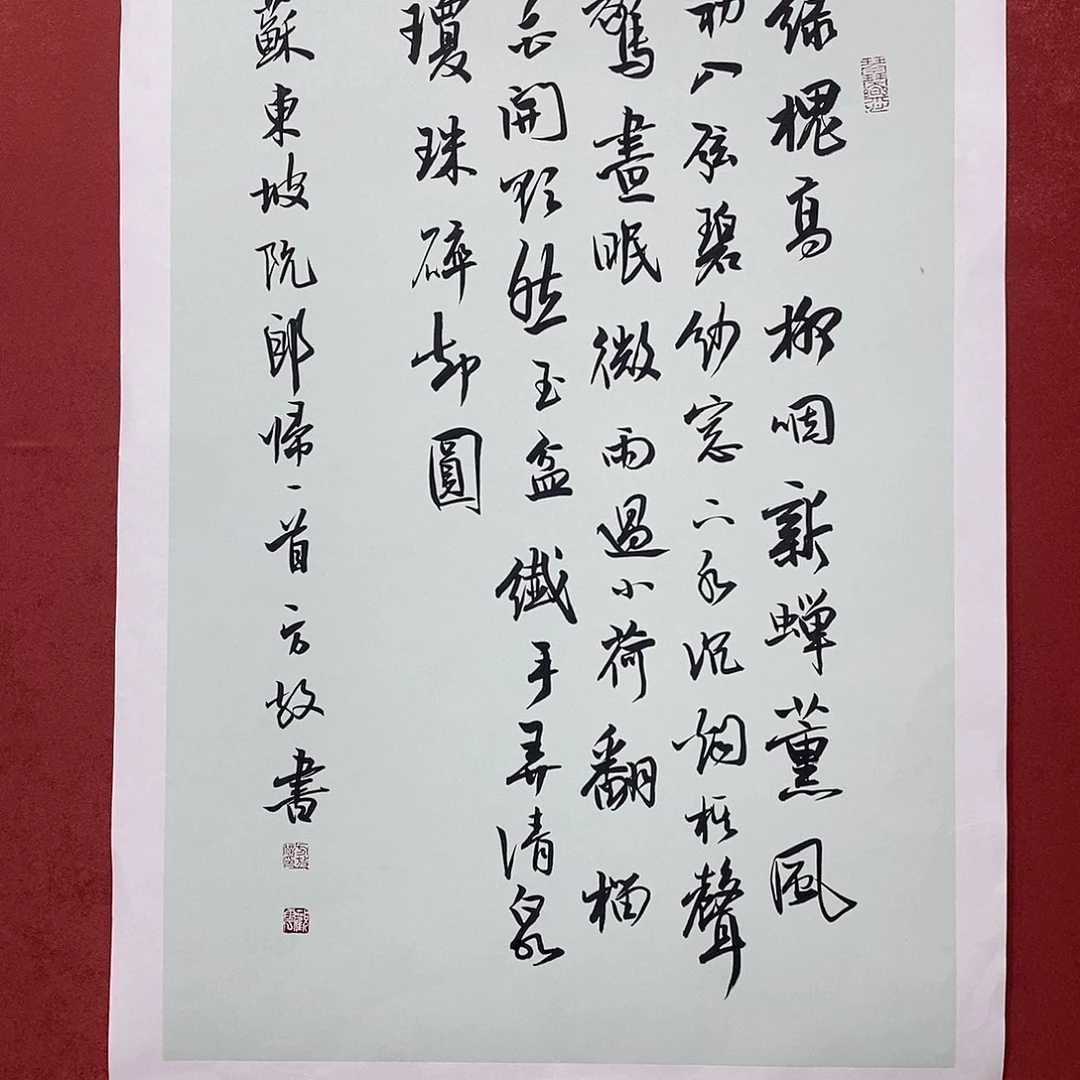 綠槐高柳咽新蝉薰風
初入弦碧紗窓下水沉烟棋聲
驚晝眠微雨過小荷翻榴
花開欲然玉盆纖手弄清泉
瓊珠碎却圓
蘇東坡阮郎帰一首方書